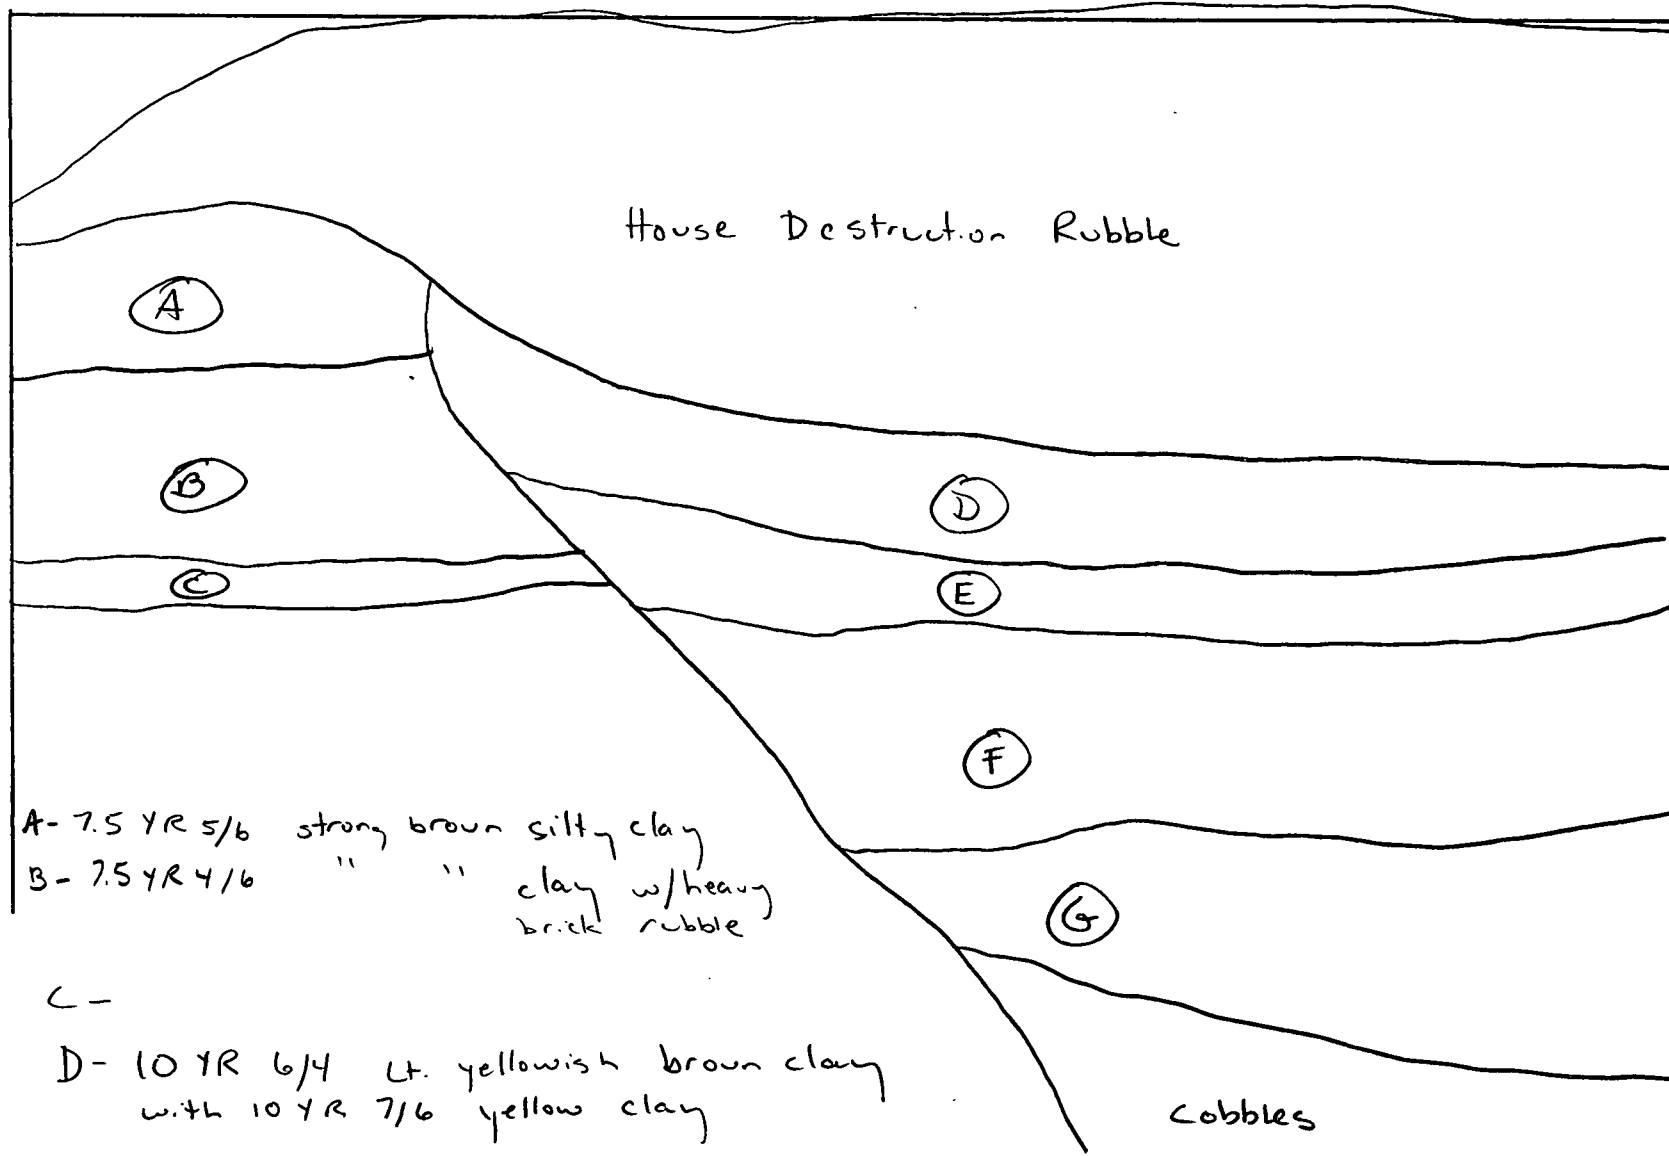 House Destruction Rubble
A
B
D
C
E
F
A- 7.5 YR 5/6 strong brown silty clay
B- 7.5 YR 4/6 " " clay w/heavy
brick rubble
G
C -
D- 10 YR 6/4 Lt. yellowish brown clay
with 10 YR 7/6 yellow clay
Cobbles